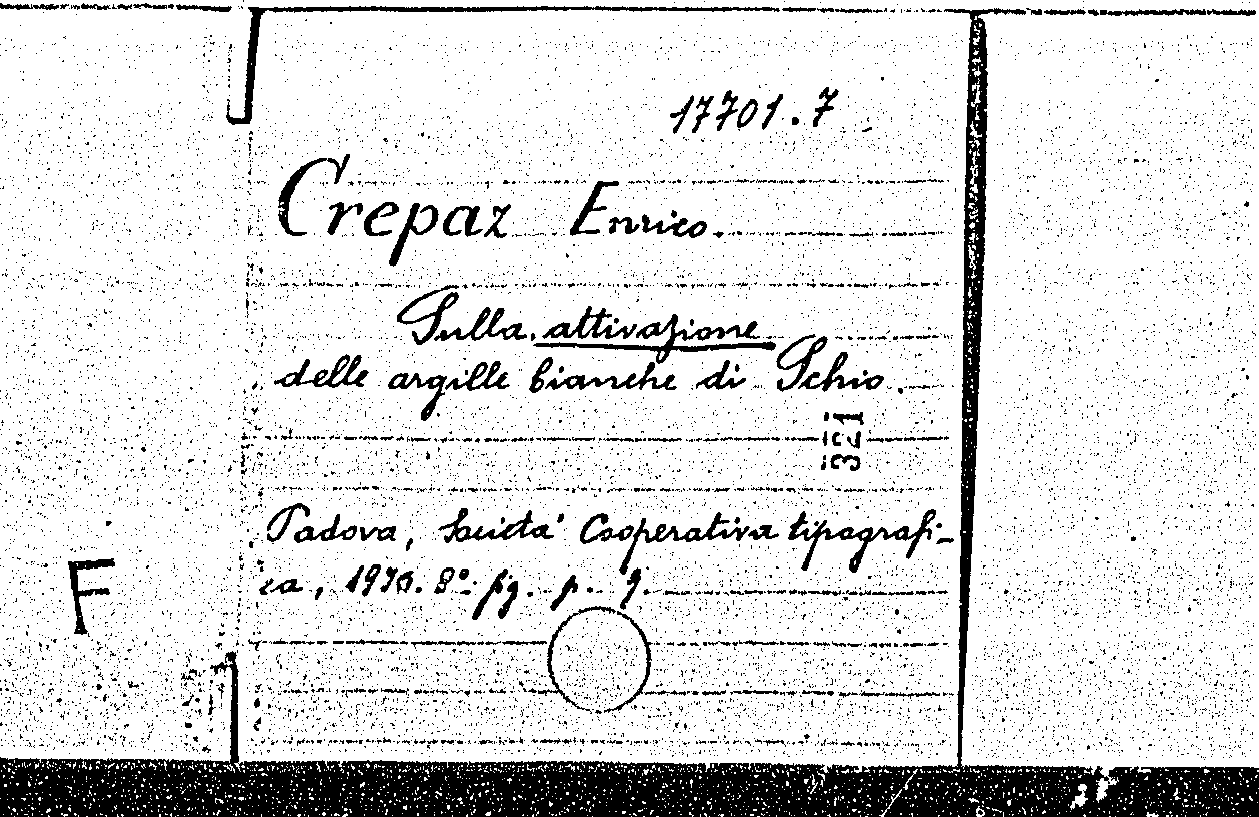 17701.7
Crepaz Enrico.
Sulla attivazione
delle argille bianche di Schio.
321
Padova, Società Cooperativa tipografi-
ca, 8° fig. p. 9.
F